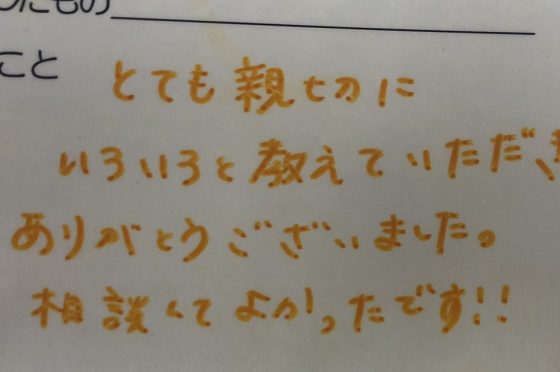 したもの
こと
とても親切に
いろいろと教えていただき
ありがとうございました。
相談してよかったです!!